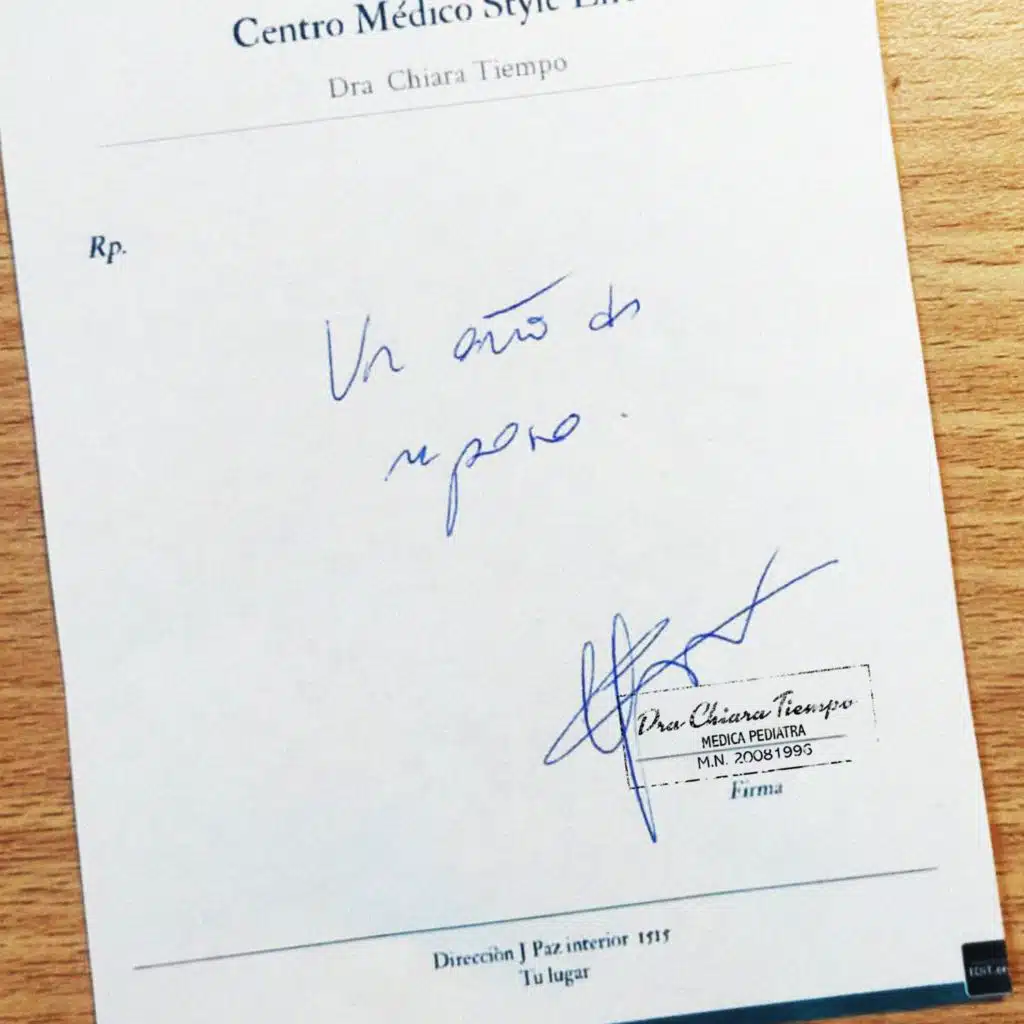 Centro Médico Style
Dra Chiara Tiempo
Rp.
Un año de
reposo.
Dra Chiara Tiempo
MEDICA PEDIATRA
M.N. 20081996
Firma
Dirección J Paz interior 1515
Tu lugar